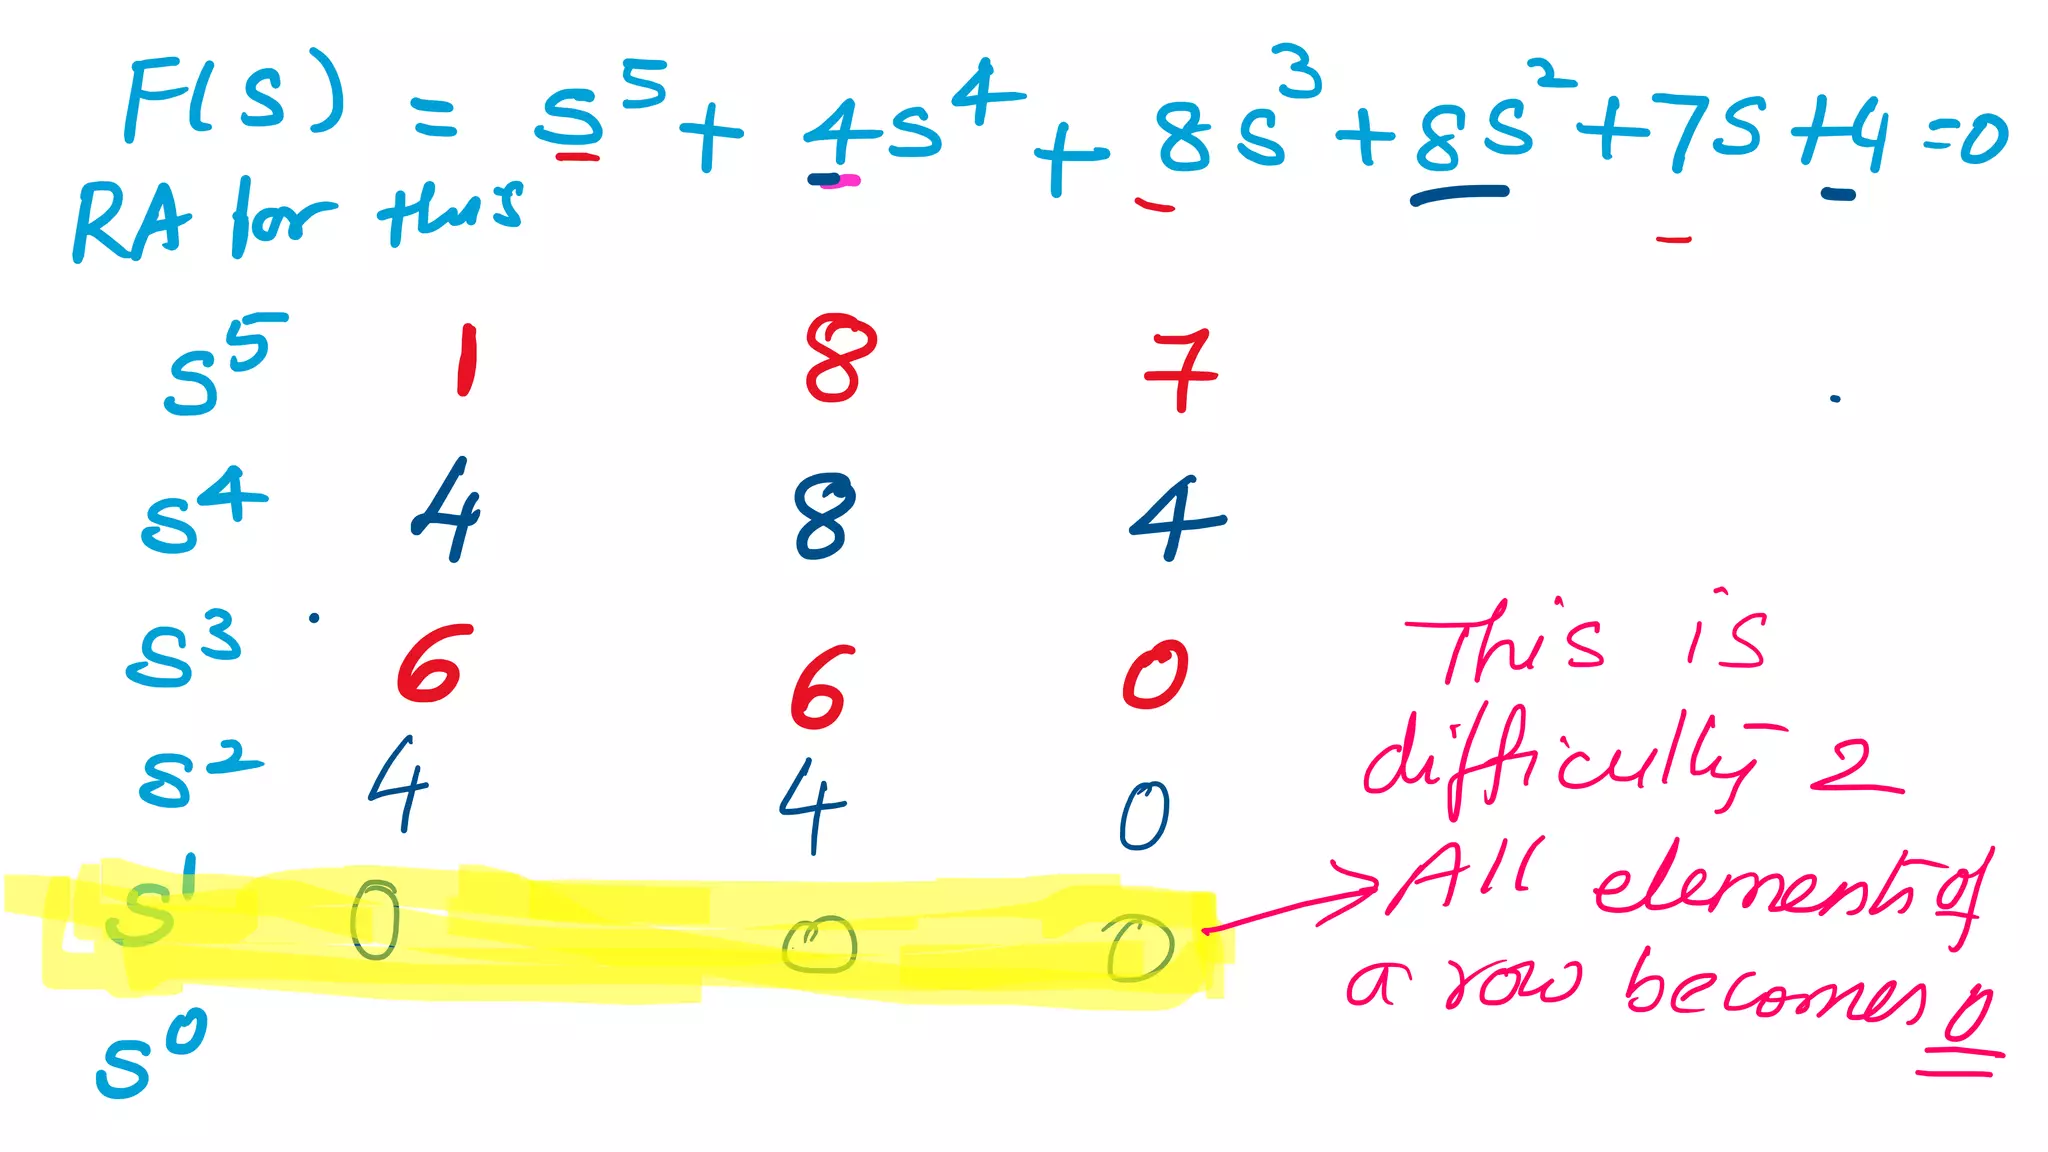 F(s) = s⁵ + 4s⁴ + 8s³ + 8s² + 7s + 4 = 0
RA for this
s⁵ 1 8 7
s⁴ 4 8 4
s³ 6 6 0
s² 4 4 0
s¹ 0 0 0
s⁰
This is
difficulty 2
All elements of
a row becomes 0